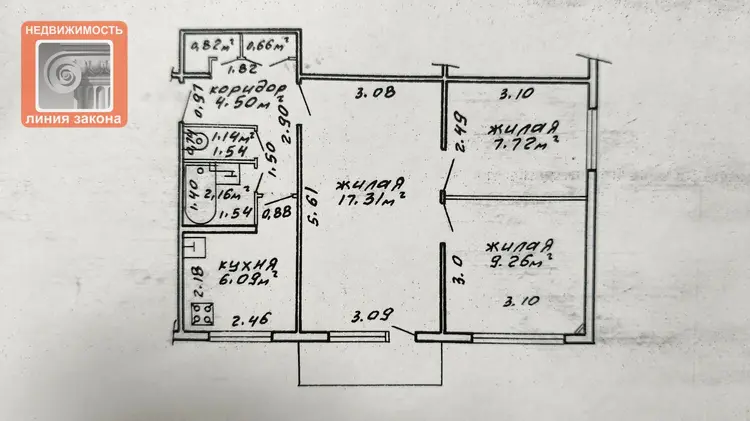 НЕДВИЖИМОСТЬ
ЛИНИЯ ЗАКОНА
0,82м² 0,66м²
1.82
коридор
4.50м²
0.97
2.90
3.08
3.10
0,74
1.14м²
1.54
1.50
2.49
жилая
7.72м²
1.40
2,16м²
1.54
0,88
5.61
жилая
17.31м²
кухня
6.09м²
2.18
2.46
3.09
3.0
жилая
9.26м²
3.10